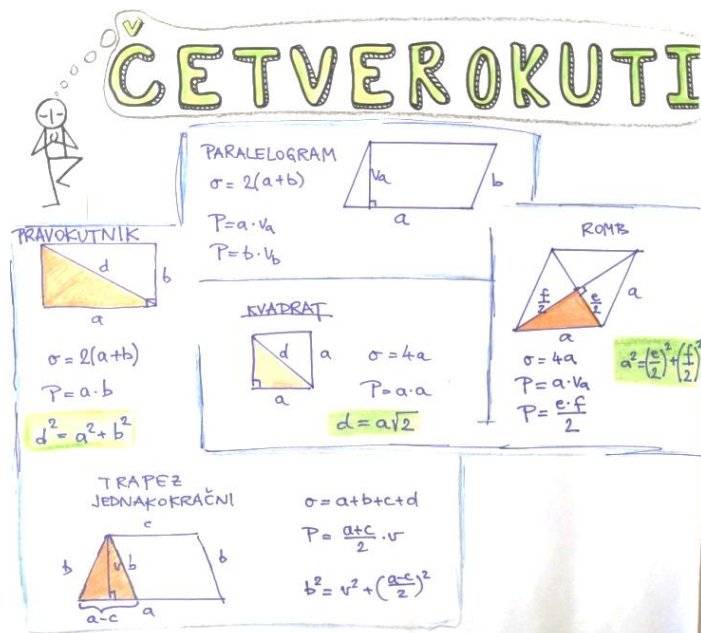 ČETVEROKUTI
PARALELOGRAM
σ = 2(a+b)
P = a · va
P = b · vb
va
b
a
PRAVOKUTNIK
d
b
a
σ = 2(a+b)
P = a · b
d² = a² + b²
KVADRAT
d
a
a
σ = 4a
P = a · a
d = a√2
ROMB
f/2
e/2
a
a
σ = 4a
P = a · va
P = e · f / 2
a² = (e/2)² + (f/2)²
TRAPEZ
JEDNAKOKRAČNI
c
b
v
b
b
a-c
a
σ = a+b+c+d
P = a+c / 2 · v
b² = v² + (a-c / 2)²